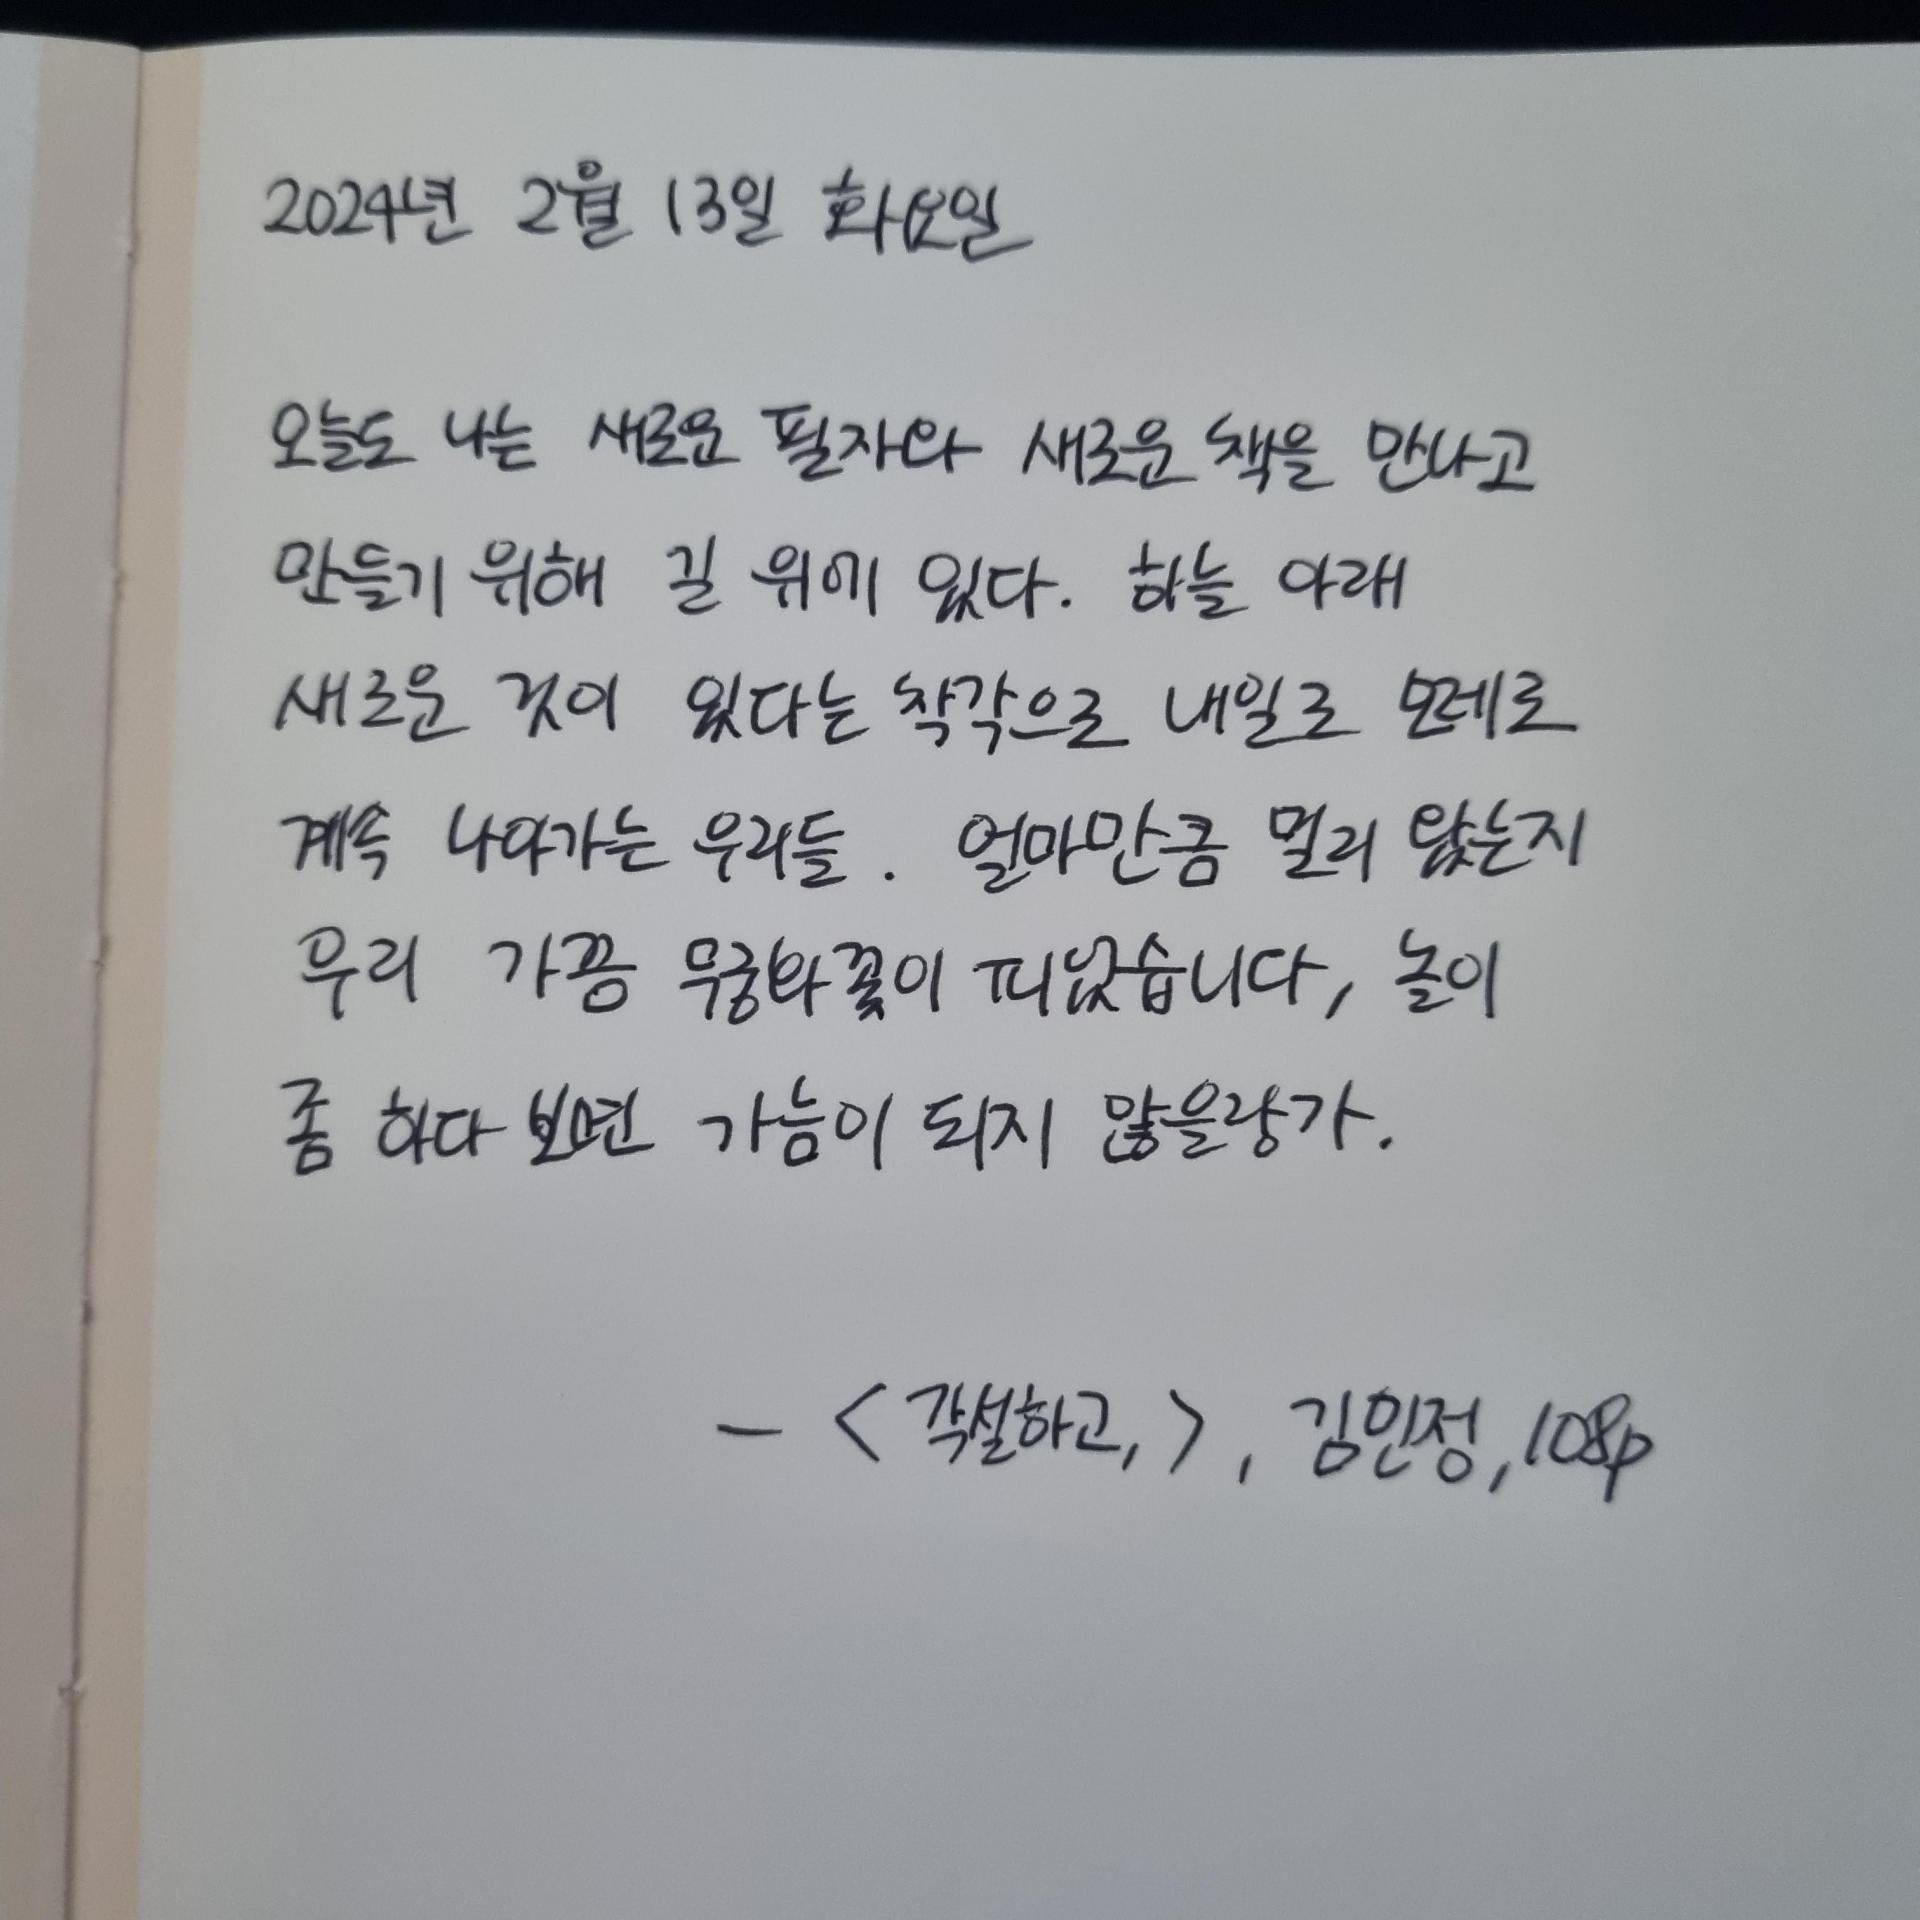 2024년 2월 13일 화요일
오늘도 나는 새로운 필자와 새로운 책을 만나고
만들기 위해 길 위에 있다. 하늘 아래
새로운 것이 있다는 착각으로 내일로 모레로
계속 나아가는 우리들. 얼마만큼 멀리 왔는지
우리 가끔 무궁화꽃이 피었습니다, 놀이
좀 하다 보면 가늠이 되지 않을랑가.
- <각설하고,>, 김민정, 108p